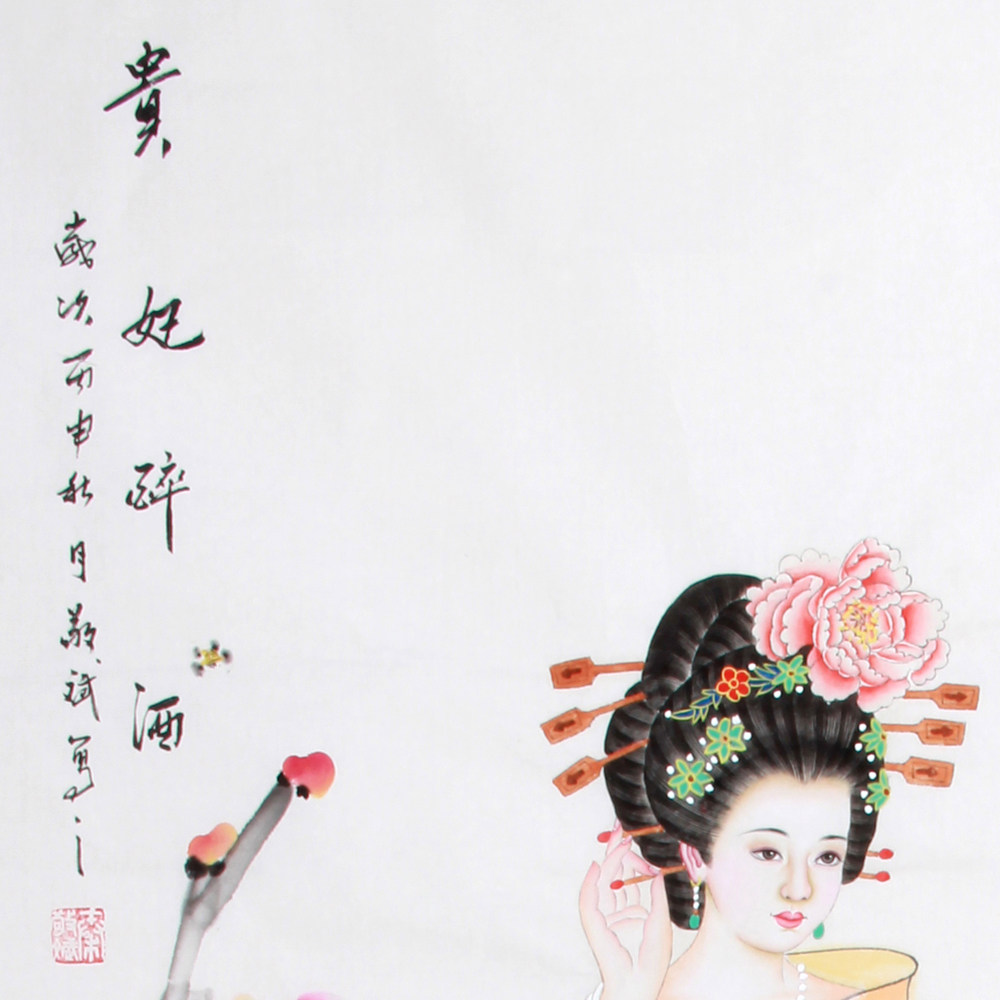 貴妃醉酒
歲次丙申秋月敬斌寫之